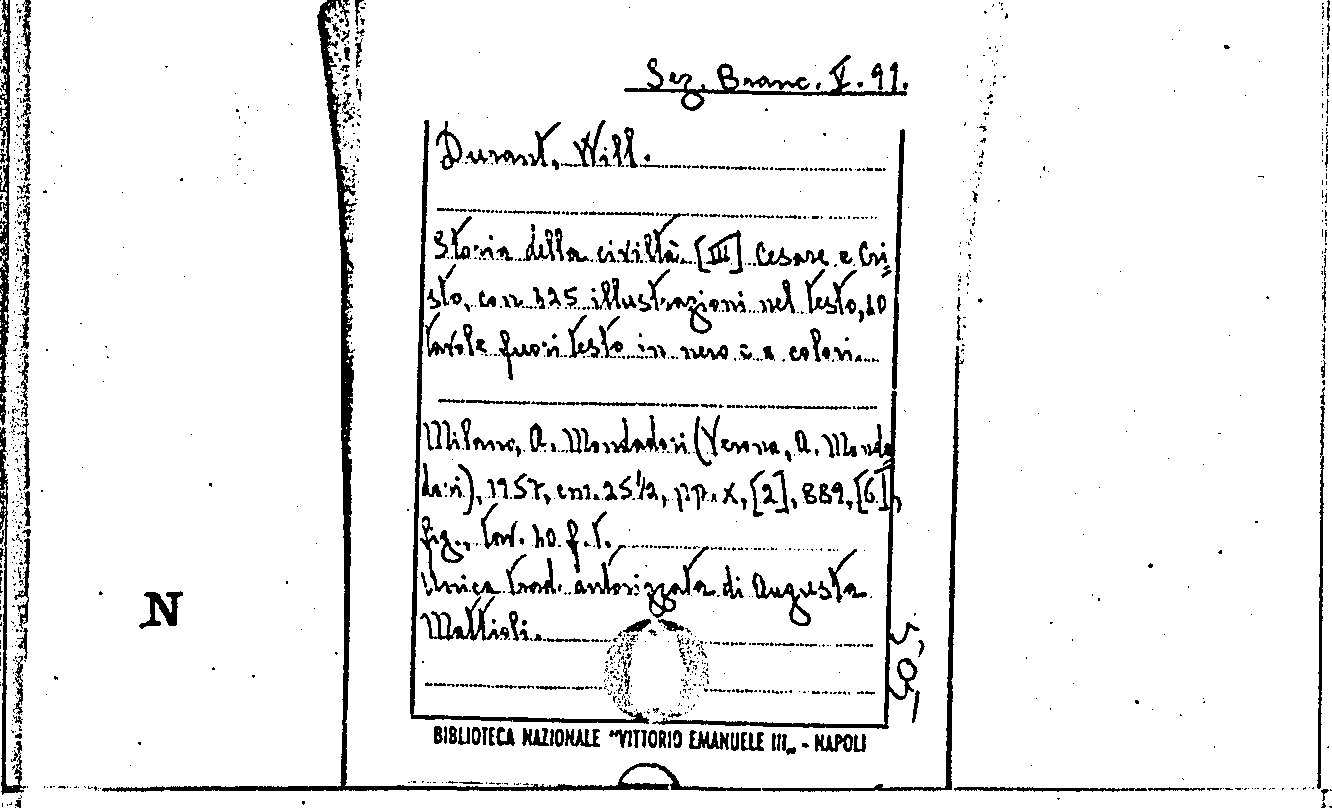 Sez. Branc. V. 91.
Durant, Will.
Storia della civiltà. [III] Cesare e Cri=
sto, con 325 illustrazioni nel testo, 10
tavole fuori testo in nero e a colori.
Milano, A. Mondadori (Verona, A. Monda=
dori), 1957, cm. 25½, pp. X, [2], 889, [6],
fig., tav. 10 f. t.
Unica trad. autorizzata di Augusta
Mattioli.
N
BIBLIOTECA NAZIONALE "VITTORIO EMANUELE III„ - NAPOLI